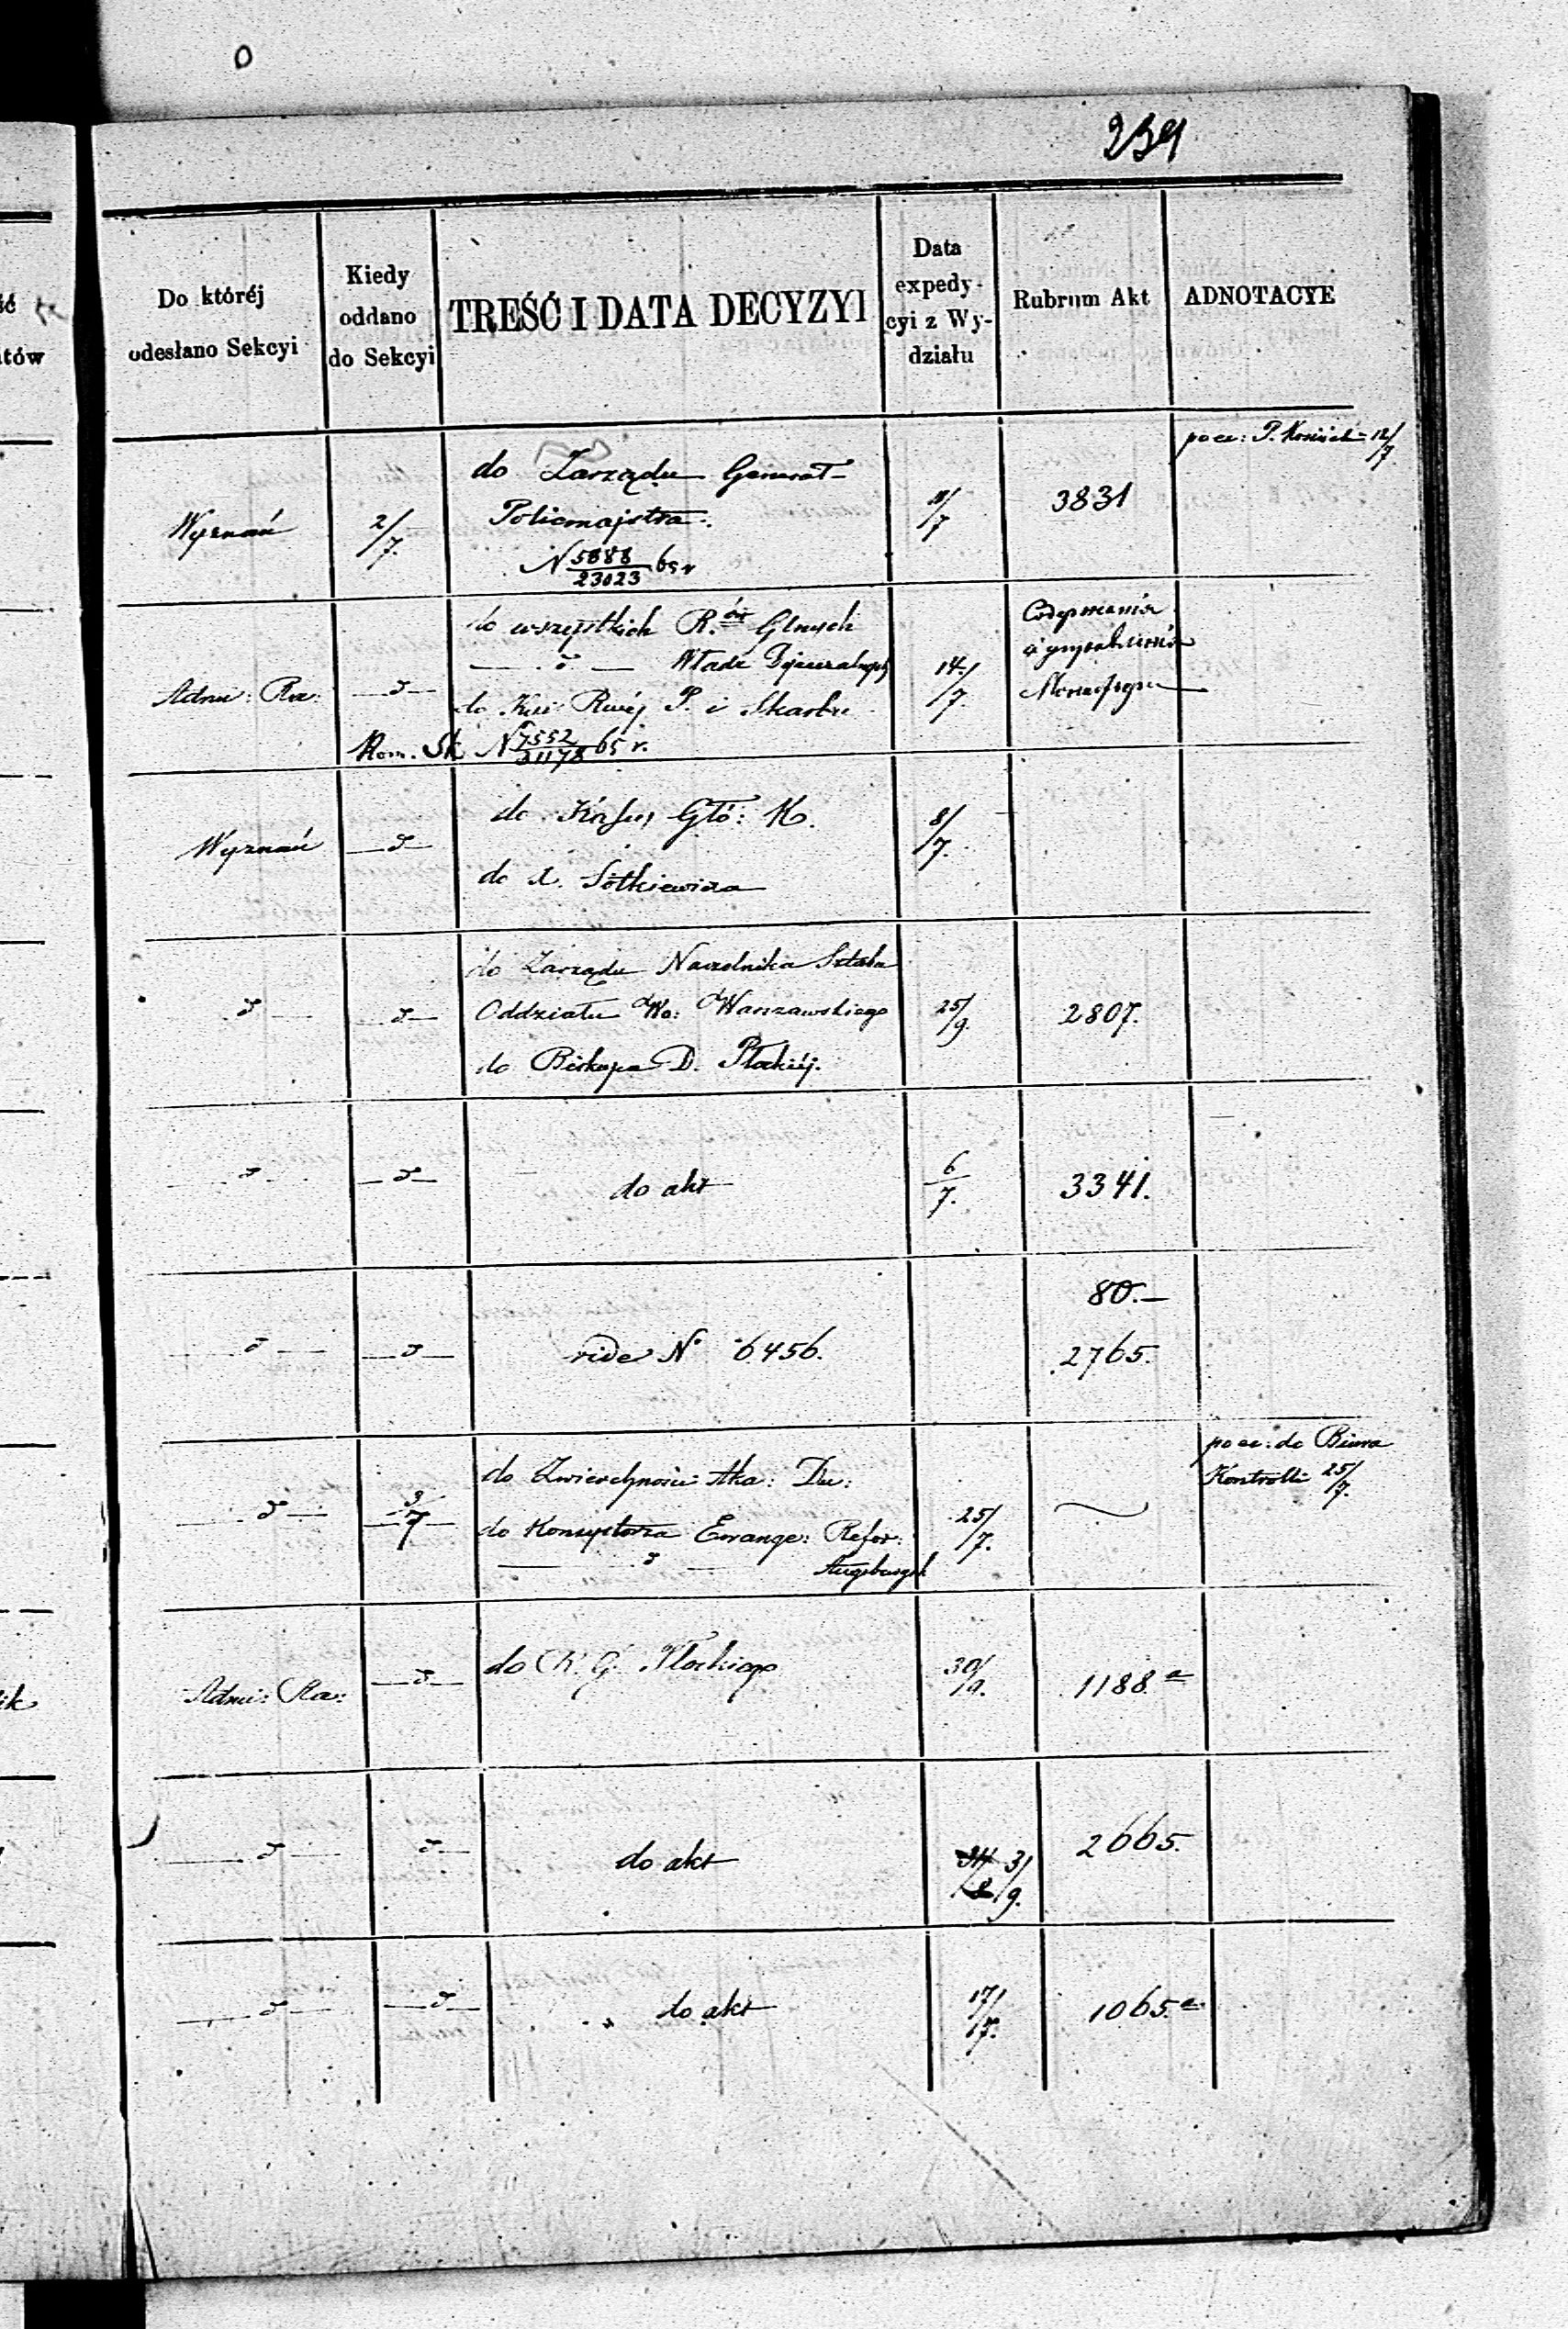 239
Do któréj
odesłano Sekcyi
Kiedy
oddano
do Sekcyi
TREŚĆ I DATA DECYZYI
Data
expedy-
cyi z Wy-
działu
Rubrum Akt
ADNOTACYE
Wyznań
2/7.
do Zarządu Generał-
Policmajstra.
N 5888/23023 65 r
11/7
3831
12/7
Admi: Ra:
do wszystkich R. Głnych
Władz
do P. i Skarbu
Kom. Sk N 7552/31178 65 r.
14/7.
Wyznań
do Kassy Głó: K.
do X. Sotkiewicza
8/7.
do Zarządu Naczelnika Sztabu
Oddziału Wo: Warszawskiego
do Biskupa D. Płockiéj.
25/9.
2807.
do akt
6/7.
3341.
80.—
vide No 6456.
2765.
3/7
do Zwierzchności Aka: Du:
do Konsystorza Ewange: Refor:
Augsburgsk
25/7.
po ec: do Biura
Kontrolli 25/7.
Admi: Ra:
do R. G. Płockiego
30/9.
1188 a
do akt
3/9.
2665.
do akt
17/7.
1065. a